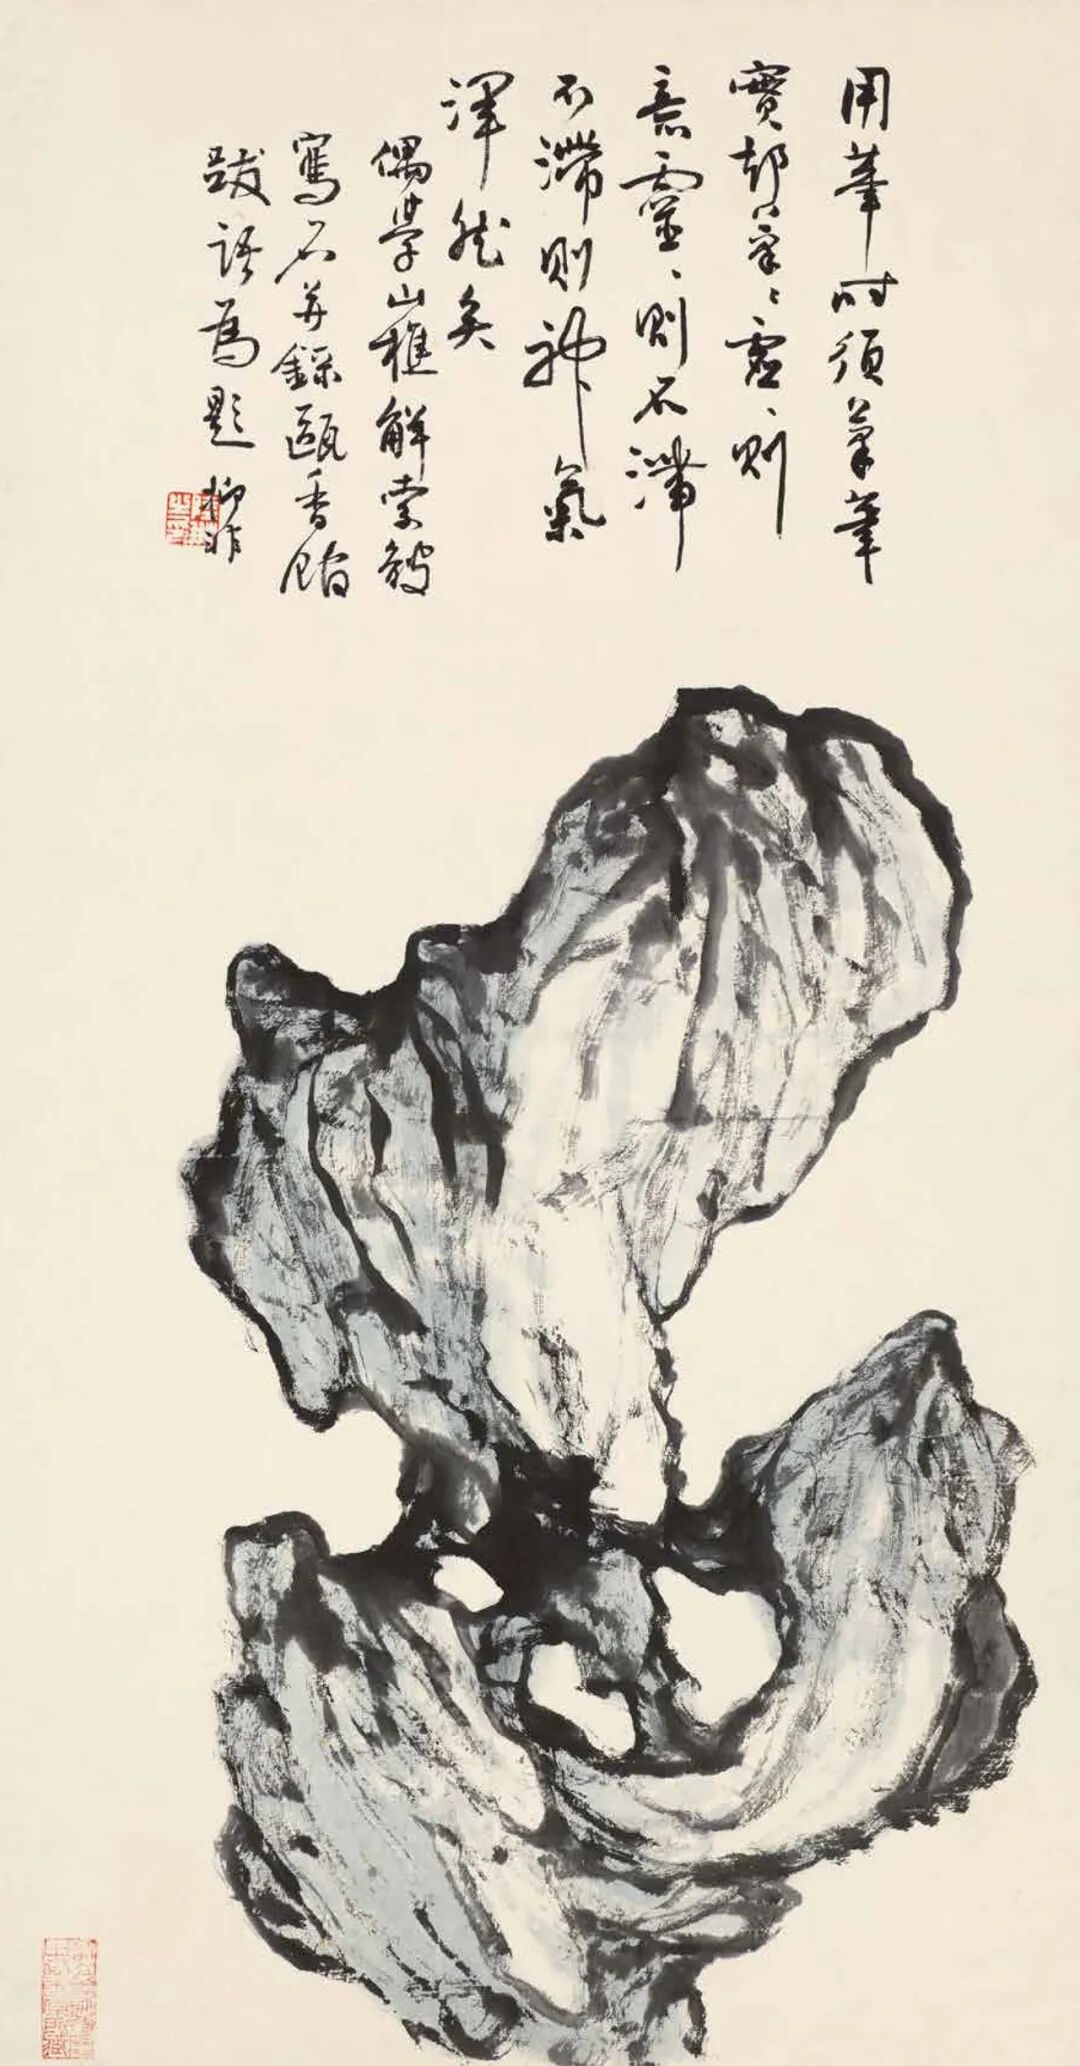 用筆时須筆筆
實却筆〻虛〻則
意靈〻則不滯
不滯則神氣
渾然矣
偶學山樵解索皴
寫石并錄甌香館
跋語為題 抑非